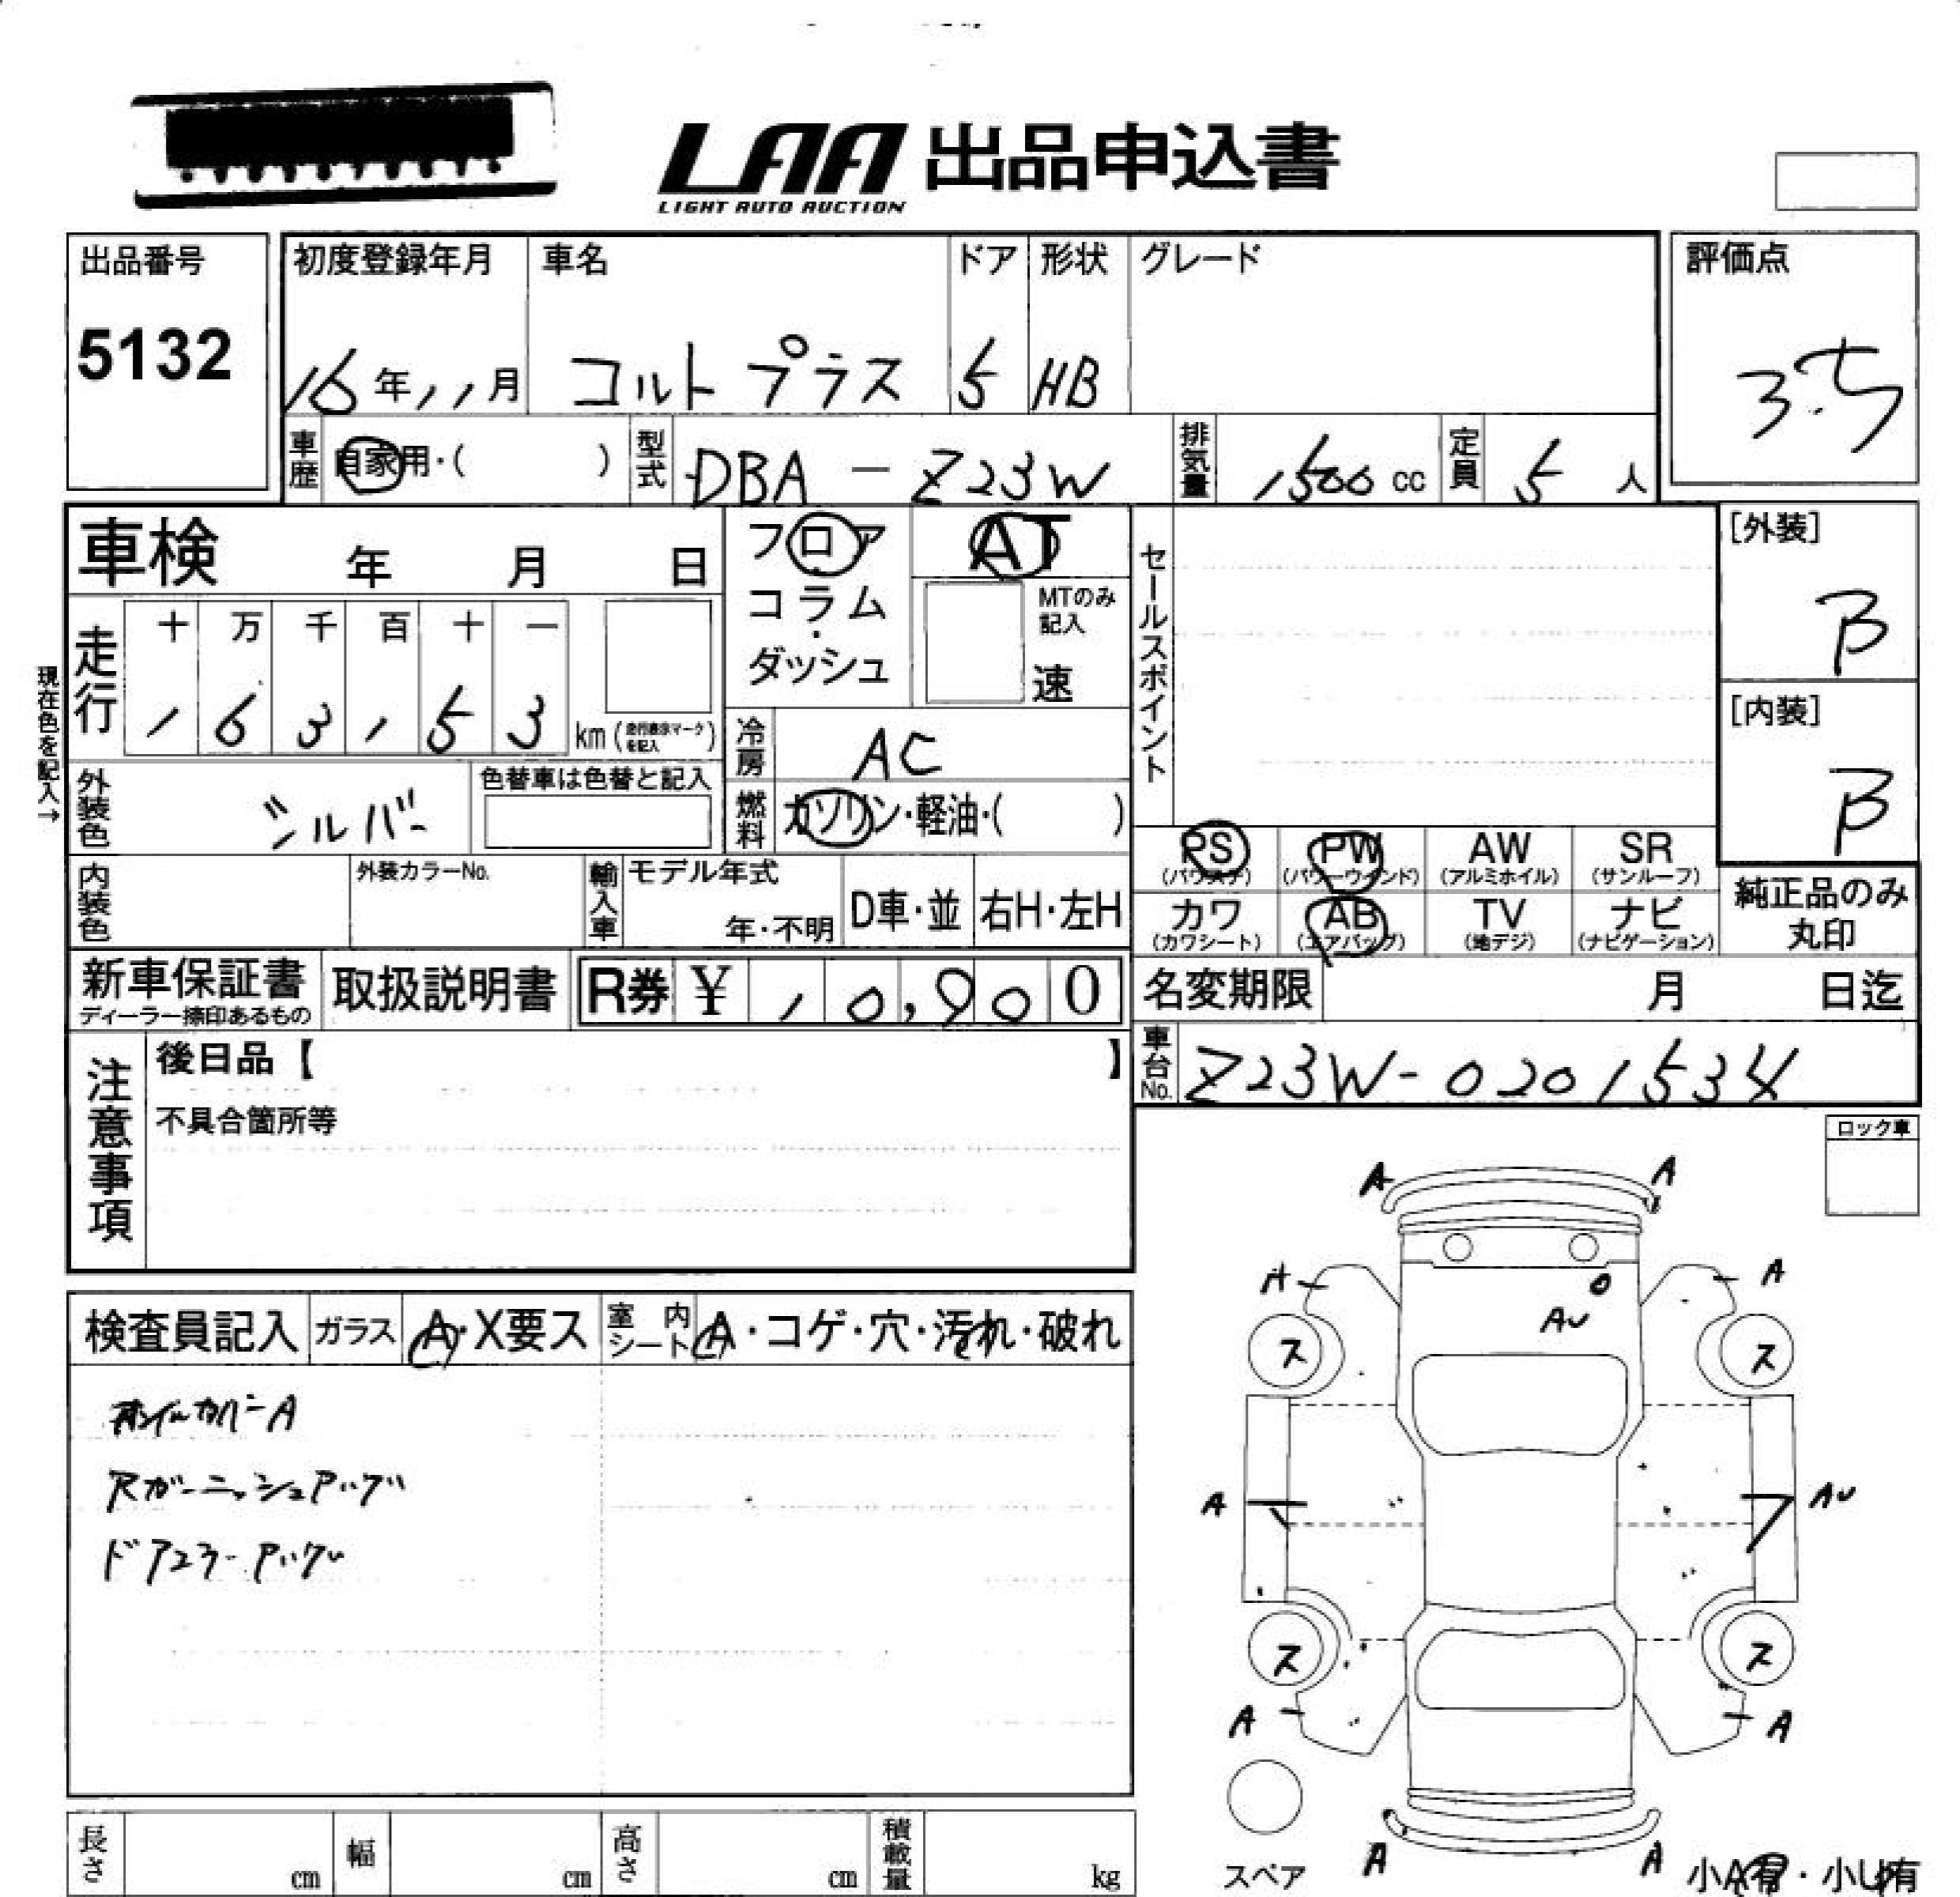 LAA 出品申込書
LIGHT AUTO AUCTION
出品番号
5132
初度登録年月 車名 ドア 形状 グレード
16年11月 コルトプラス 5 HB
評価点
3.5
車歴 自家用・( ) 型式 DBA-Z23W 排気量 1500 cc 定員 5 人
車検 年 月 日
フロア・コラム・ダッシュ
AT
MTのみ記入
速
セールスポイント
[外装]
B
[内装]
B
現在色を記入→
走行 十 万 千 百 十 一
1 6 3 1 5 3 km (走行表示マークを記入)
冷房 AC
外装色 シルバー
色替車は色替と記入
燃料 ガソリン・軽油・( )
内装色
外装カラーNo.
輸入車 モデル年式
年・不明 D車・並 右H・左H
PS PW AW SR
(パワステ) (パワーウインド) (アルミホイル) (サンルーフ)
カワ AB TV ナビ
(カワシート) (エアバッグ) (地デジ) (ナビゲーション)
純正品のみ
丸印
新車保証書
ディーラー捺印あるもの
取扱説明書
R券 ¥ 10,900
名変期限 月 日迄
車台No. Z23W-0201534
注意事項
後日品【 】
不具合箇所等
ロック車
検査員記入 ガラス A・X要ス 室内シート A・コゲ・穴・汚れ・破れ
ホイルカバーA
Rガーニッシュアリグ
ドアミラーアリグ
A A
A A
AU
ス ス
A AU
ス ス
A A
スペア
A A
小A有・小U有
長さ cm 幅 cm 高さ cm 積載量 kg